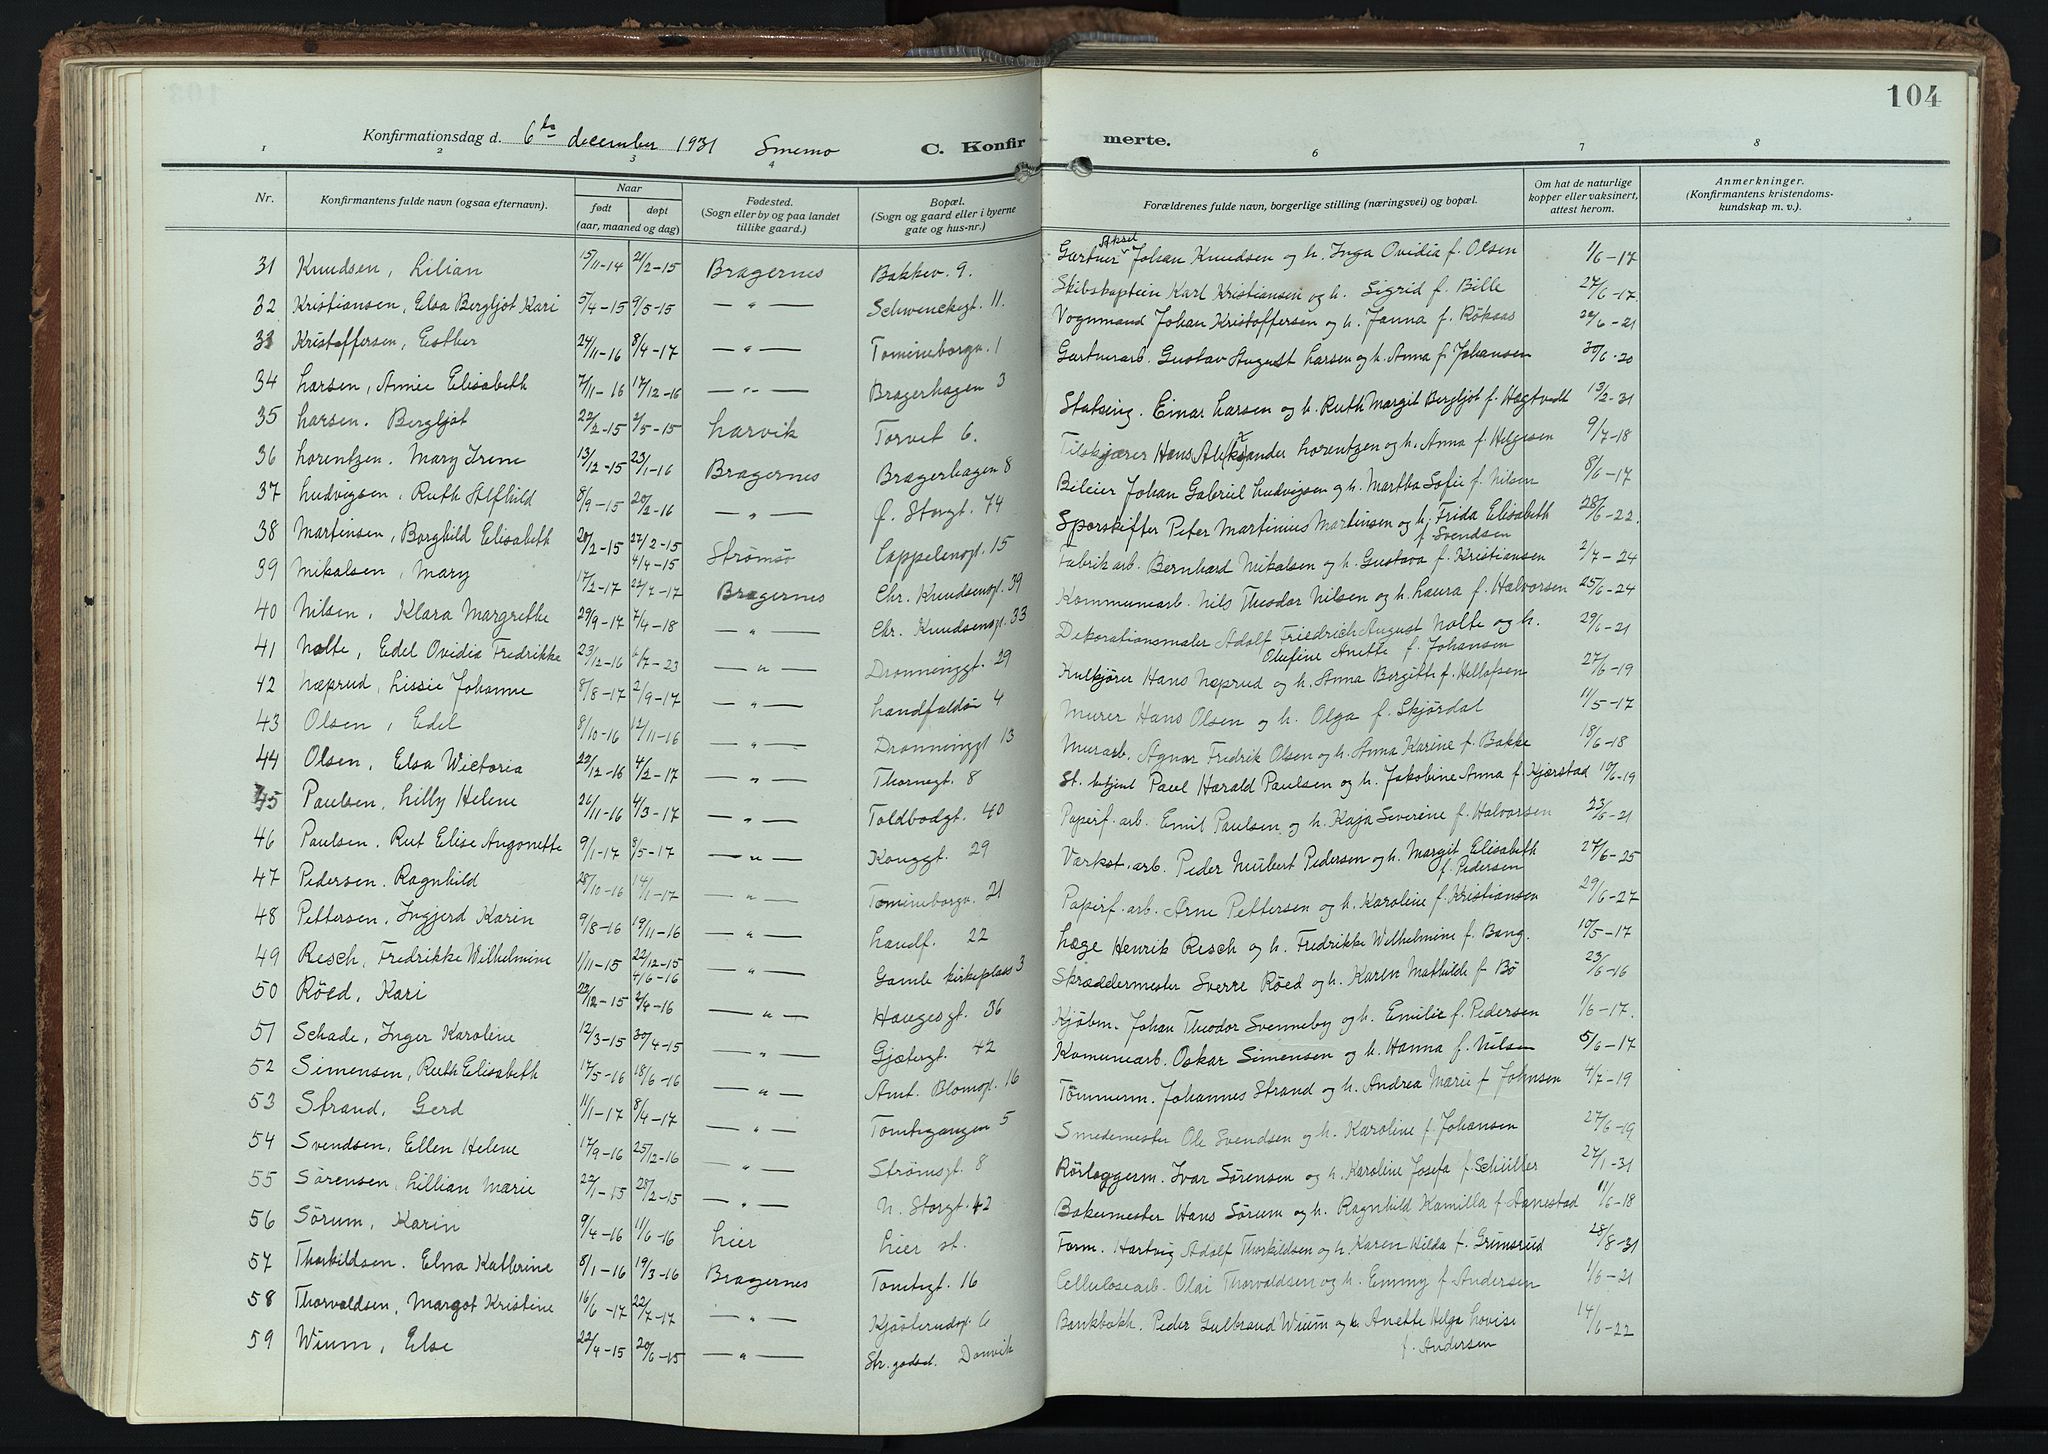 104
Konfirmationsdag d. 6te december 1931
C. Konfirmerte.
1 2 3 4 6 7 8
Nr. Konfirmantens fulde navn (ogsaa efternavn). Naar født døpt (aar, maaned og dag) Fødested. (Sogn eller by og paa landet tillike gaard.) Bopæl. (Sogn og gaard eller i byerne gate og hus-nr.) Forældrenes fulde navn, borgerlige stilling (næringsvei) og bopæl. Om hat de naturlige kopper eller vaksinert, attest herom. Anmerkninger. (Konfirmantens kristendomskundskap m. v.).
31 Knudsen, Lilian 15/11-14 21/2-15 Bragernes Bakkev. 9. Gartner Aksel Johan Knudsen og h. Inga Ovidia f. Olsen 1/6-17
32 Kristiansen, Elsa Bergljot Kari 5/4-15 9/5-15 — " — Schwenckegt. 11. Skibskaptein Karl Kristiansen og h. Sigrid f. Bille 27/6-17.
33 Kristoffersen, Esther 24/11-16 8/4-17 — " — Tomineborgv. 1 Vognmand Johan Kristoffersen og h. Janna f. Rökaas 22/6-21
34 Larsen, Annie Elisabeth 7/11-16 17/12-16 — " — Bragerhagen 3 Gartnerarb. Gustav August Larsen og h. Anna f. Johansen 30/6-20
35 Larsen. Bergljot 22/2-15 2/5-15 Larvik Torvet 6. Statsing. Einar Larsen og h. Ruth Margit Bergljot f. Hegtvedt 13/2-31
36 Lorentzen. Mary Irene 13/12-15 23/1-16 Bragernes Bragerhagen 8 Tilskjærer Hans Aleksander Lorentzen og h. Anna f. Helgesen 9/7-18
37 Ludvigsen, Ruth Alfhild 8/9-15 20/2-16 — " — Ø. Storgt. 74 Bileier Johan Gabriel Ludvigsen og h. Martha Sofie f. Nilsen 8/6-17
38 Martinsen, Borghild Elisabeth 20/2-15 27/2-15 4/4-15 Strømsø Cappelensgt. 15 Sporskifter Peter Martinius Martinsen og h. Frida Elisabeth f. Svendsen 28/6-22.
39 Mikalsen, Mary 17/2-17 22/7-17 Bragernes Chr. Knudsensgt. 39 Fabrikarb. Bernhard Mikalsen og h. Gustava f. Kristiansen 2/7-24
40 Nilsen, Klara Margrethe 29/9-17 7/4-18 — " — Chr. Knudsensgt. 33 Kommunearb. Nils Theodor Nilsen og h. Laura f. Halvorsen 25/6-24
41 Nolte, Edel Ovidia Fredrikke 23/12-16 /7-23 — " — Dronninggt. 29 Dekorationsmaler Adolf Friedrich August Nolte og h. Olufine Anette f. Johansen 29/6-21
42 Næprud, Lissie Johanne 8/8-17 2/9-17 — " — Landfaldöi 4 Kulkjörer Hans Næprud og h. Anna Bergitte f. Hellofsen 27/6-19
43 Olsen, Edel 8/10-16 12/11-16 — " — Dronninggt 13 Murer Hans Olsen og h. Olga f. Skjørdal 11/5-17
44 Olsen, Elsa Wictoria 22/12-16 4/2-17 — " — Thornegt. 8 Murarb. Agnar Fredrik Olsen og h. Anna Karine f. Bakke 18/6-18
45 Paulsen, Lilly Helene 26/11-16 4/3-17 — " — Toldbodgt. 40 St. btjent Paul Harald Paulsen og h. Jakobine Anna f. Kjærstad 10/6-19
46 Paulsen. Rut Elise Angonette 9/1-17 8/5-17 — " — Konggt. 29 Papirf. arb. Emil Paulsen og h. Kaja Severine f. Halvorsen 23/6-21
47 Pedersen. Ragnhild 28/10-16 14/1-17 — " — Tomineborgv. 21 Værkst. arb. Peder Nubert Pedersen og h. Margit Elisabeth f. Pedersen 27/6-25
48 Pettersen. Ingjerd Karin 9/8-16 19/11-16 — " — Landf. 22 Papirf. arb. Arne Pettersen og h. Karoline f. Kristiansen 29/6-27
49 Resch, Fredrikke Wilhelmine 1/11-15 22/12-15 4/6-16 — " — Gamle kirkeplass 3 Læge Henrik Resch og h. Fredrikke Wilhelmine f. Bang. 10/5-17
50 Röed, Kari 22/12-15 2/4-16 — " — Haugesgt. 36 Skræddermester Sverre Röed og h. Karen Mathilde f. Bö 23/6-16
51 Schade, Inger Karoline 12/3-15 30/4-15 — " — Gjætergt. 42 Kjøbm. Johan Theodor Svenneby og h. Emilie f. Pedersen 1/6-17.
52 Simensen, Ruth Elisabeth 17/5-16 18/6-16 — " — Amt. Blomsgt. 16 Komunearb. Oskar Simensen og h. Hanna f. Nilsen 5/6-17
53 Strand, Gerd 11/1-17 8/4-17 — " — Tomtegangen 5 Tömmerm. Johannes Strand og h. Andrea Marie f. Johnsen 4/7-19
54 Svendsen, Ellen Helene 17/9-16 25/12-16 — " — Strömsgt. 8 Smedemester Ole Svendsen og h. Karoline f. Johansen 27/6-19
55 Sörensen, Lillian Marie 22/1-15 28/2-15 — " — N. Storgt. 42 Rörleggerm. Ivar Sörensen og h. Karoline Josefa f. Schüller 27/1-31
56 Sörum, Karin 9/4-16 11/6-16 Lier Lier st. Bakermester Hans Sörum og h. Ragnhild Kamilla f. Aanestad 11/6-18
57 Thorkildsen. Elna Katherine 8/1-16 19/3-16 Bragernes Tomtegt. 16 Form. Hartvig Adolf Thorkildsen og h. Karen Hilda f. Grimsrud 28/8-31
58 Thorvaldsen, Margot Kristine 16/6-17 22/7-17 — " — Kjösterudgt. 6 Cellulosearb. Olai Thorvaldsen og h. Emmy f. Andersen 1/6-21
59 Wium, Else 22/4-15 20/6-15 — " — Str. godset. Danvik Bankbokh. Peder Gulbrand Wium og h. Anette Helga Lovise f. Andersen 14/6-22